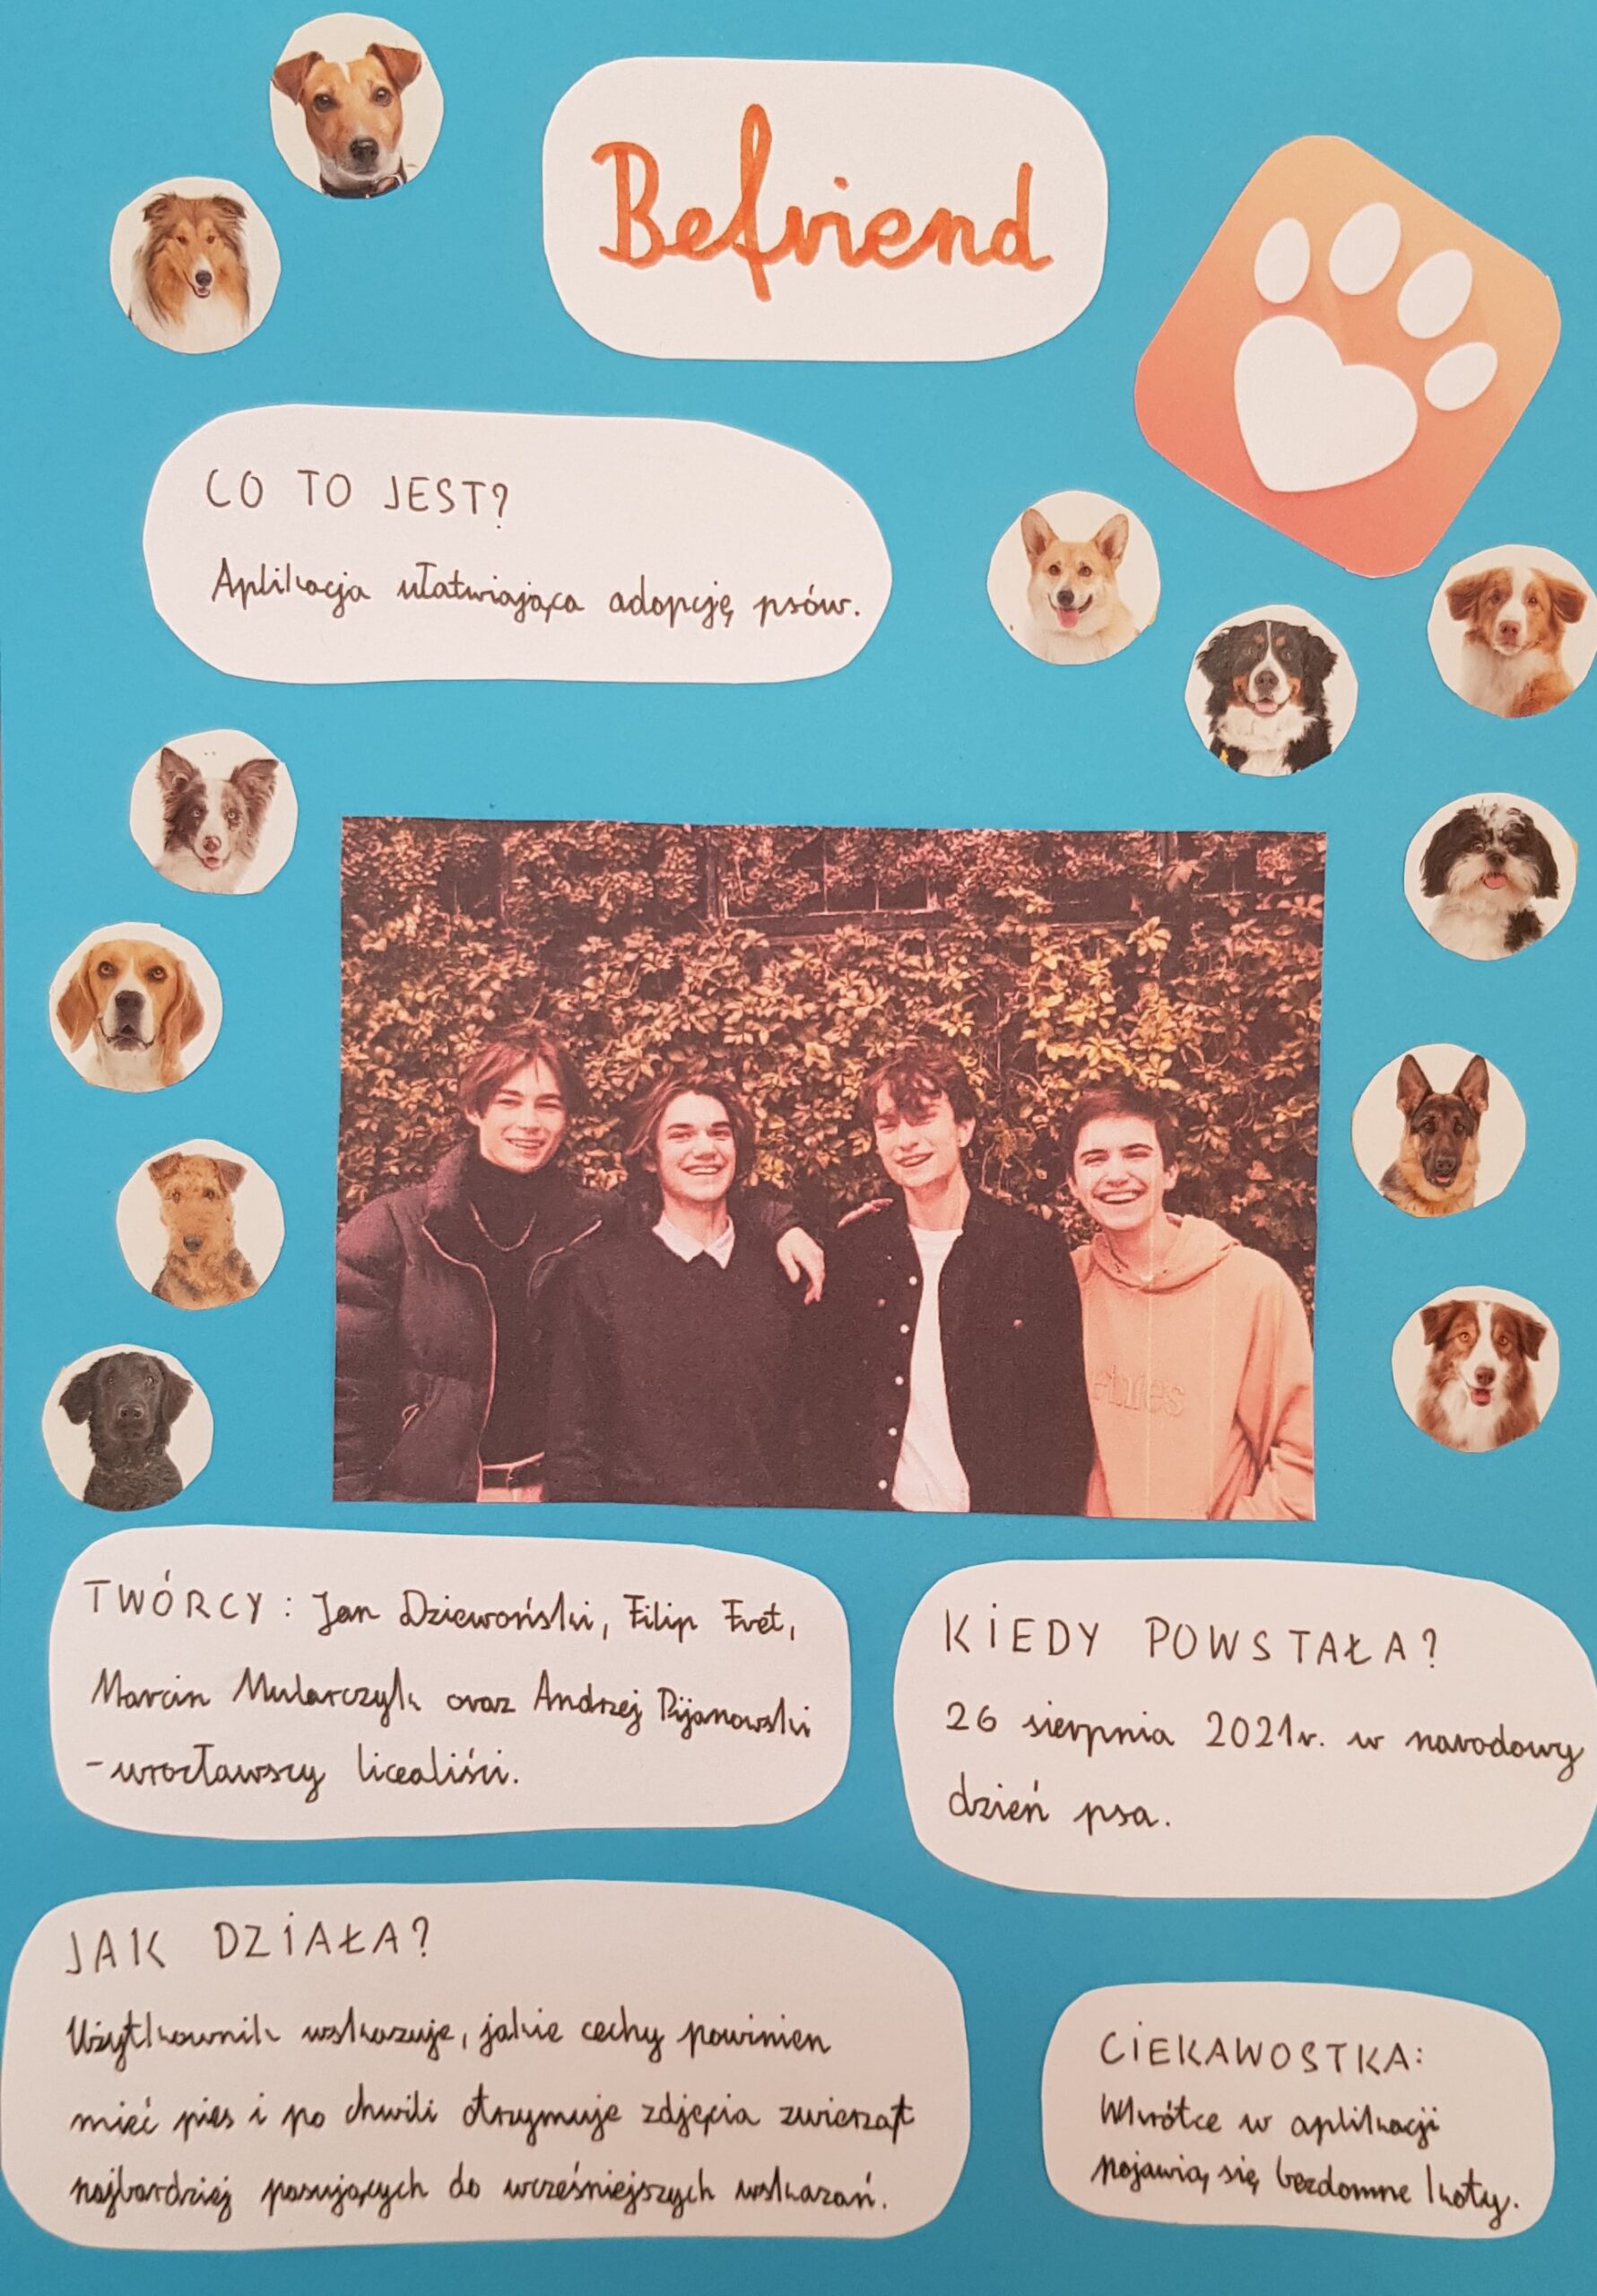 Befriend
CO TO JEST?
Aplikacja ułatwiająca adopcję psów.
TWÓRCY: Jan Dziewoński, Filip Fret,
Marcin Mularczyk oraz Andrzej Pijanowski
- wrocławscy licealiści.
KIEDY POWSTAŁA?
26 sierpnia 2021r. w narodowy
dzień psa.
JAK DZIAŁA?
Użytkownik wskazuje, jakie cechy powinien
mieć pies i po chwili otrzymuje zdjęcia zwierząt
najbardziej pasujących do wcześniejszych wskazań.
CIEKAWOSTKA:
Wkrótce w aplikacji
pojawią się bezdomne koty.